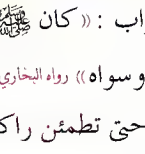 اب : (( كان ﷺ
وسواه)) رواه البخاري
حتى تطمئن راك